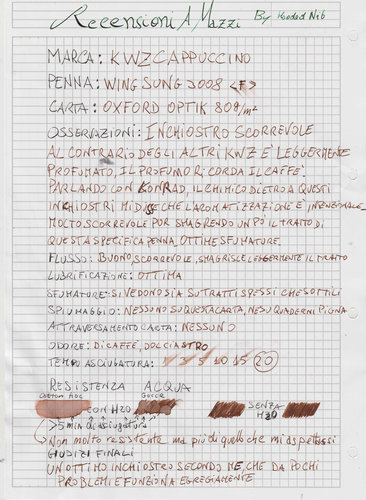 Recensioni A Mazzi By Hooded Nib
MARCA: KWZ CAPPUCCINO
PENNA: WING SUNG 2008 <F>
CARTA: OXFORD OPTIK 80g/m²
OSSERVAZIONI: INCHIOSTRO SCORREVOLE
AL CONTRARIO DEGLI ALTRI KWZ E' LEGGERMENTE
PROFUMATO, IL PROFUMO RICORDA IL CAFFE'.
PARLANDO CON KONRAD, IL CHIMICO DIETRO A QUESTI
INCHIOSTRI MI DISSE CHE L'AROMATIZZAZIONE E'
MOLTO SCORREVOLE PUR SMAGRENDO UN PO' IL TRATTO DI
QUESTA SPECIFICA PENNA. OTTIME SFUMATURE.
FLUSSO: BUONO, SCORREVOLE, SMAGRISCE LEGGERMENTE IL TRATTO
LUBRIFICAZIONE: OTTIMA
SFUMATURE: SI VEDONO SIA SU TRATTI SPESSI CHE SOTTILI
SPIUMAGGIO: NESSUNO SU QUESTA CARTA, NE SU QUADERNI PIGNA
ATTRAVERSAMENTO CARTA: NESSUNO
ODORE: DI CAFFE', DOLCIASTRO
TEMPO ASCIUGATURA: 1 3 5 10 15 20
RESISTENZA ACQUA
COTTON FIOC CON H2O GOCCE SENZA H2O
>5 min di asciugatura
Non molto resistente ma più di quello che mi aspettassi
GIUDIZI FINALI
UN OTTIMO INCHIOSTRO SECONDO ME, CHE DA POCHI
PROBLEMI E FUNZIONA EGREGIAMENTE